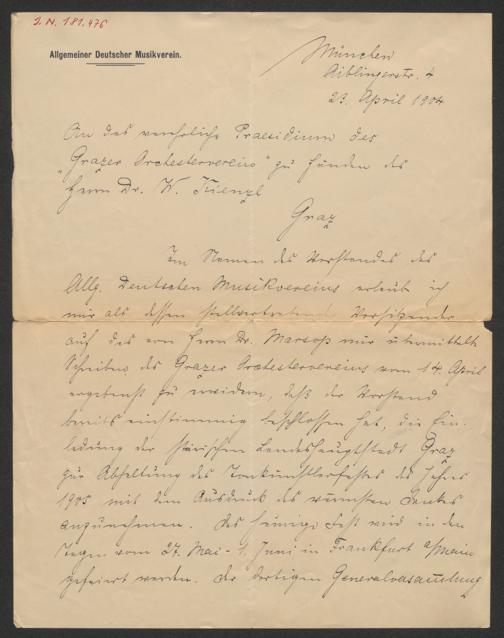 I. N. 181.476
Allgemeiner Deutscher Musikverein.
München
Aiblingerstr. 4
23. April 1904
An das verehrliche Praesidium des
"Grazer Orchestervereins" zu Händen des
Herrn Dr. W. Kienzl
Graz
Im Namen des Vorstandes des
Allg. Deutschen Musikvereins erlaube ich
mir als dessen stellvertretender Vorsitzender
auf das von Herrn Dr. Marsop mir übermittelte
Schreiben des Grazer Orchestervereins vom 14. April
ergebenst zu erwidern, daß der Vorstand
bereits einstimmig beschlossen hat, die Ein-
ladung der steirischen Landeshauptstadt Graz
zur Abhaltung des Tonkünstlerfestes des Jahres
1905 mit dem Ausdruck des wärmsten Dankes
anzunehmen. Das heurige Fest wird in den
Tagen vom 27. Mai - 1. Juni in Frankfurt a/Main
gefeiert werden. Der dortigen Generalversammlung